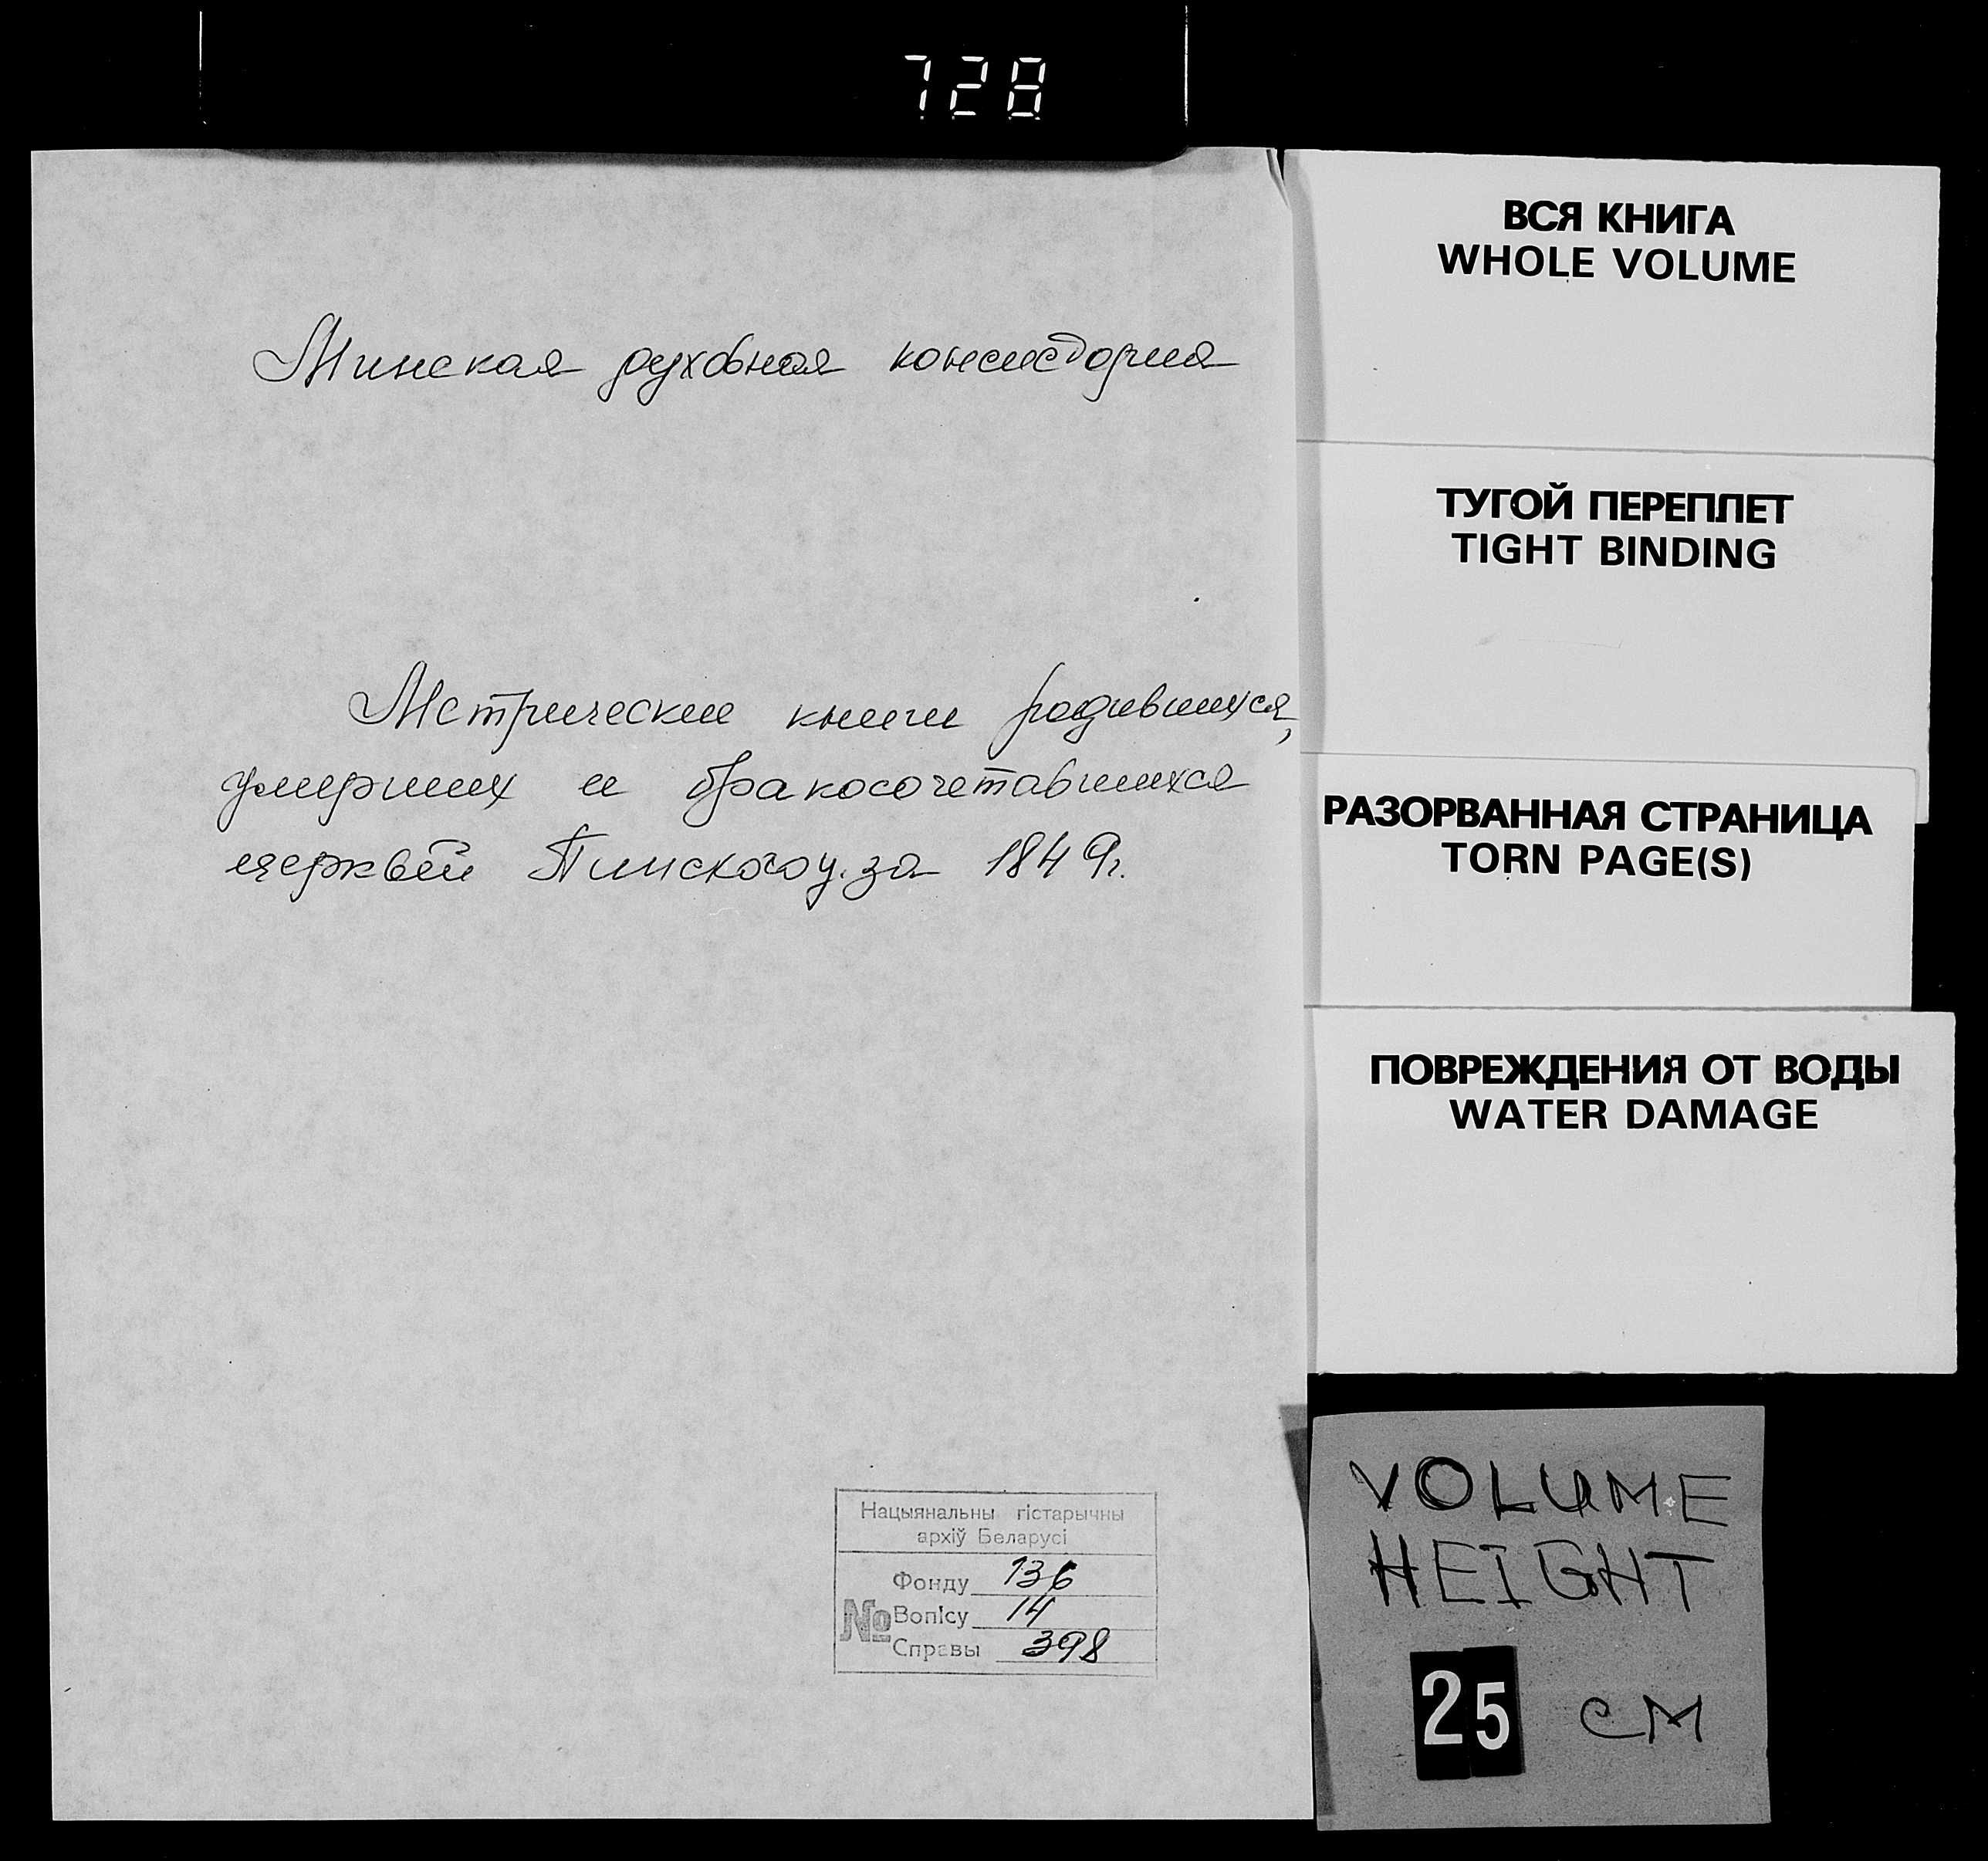 728
Минская духовная консистория
Метрические книги родившихся,
умерших и бракосочетавшихся
церквей Пинского у. за 1849г.
Нацыянальны гістарычны
архіў Беларусі
№
Фонду 136
Вопісу 14
Справы 398
ВСЯ КНИГА
WHOLE VOLUME
ТУГОЙ ПЕРЕПЛЕТ
TIGHT BINDING
РАЗОРВАННАЯ СТРАНИЦА
TORN PAGE(S)
ПОВРЕЖДЕНИЯ ОТ ВОДЫ
WATER DAMAGE
VOLUME
HEIGHT
25 см